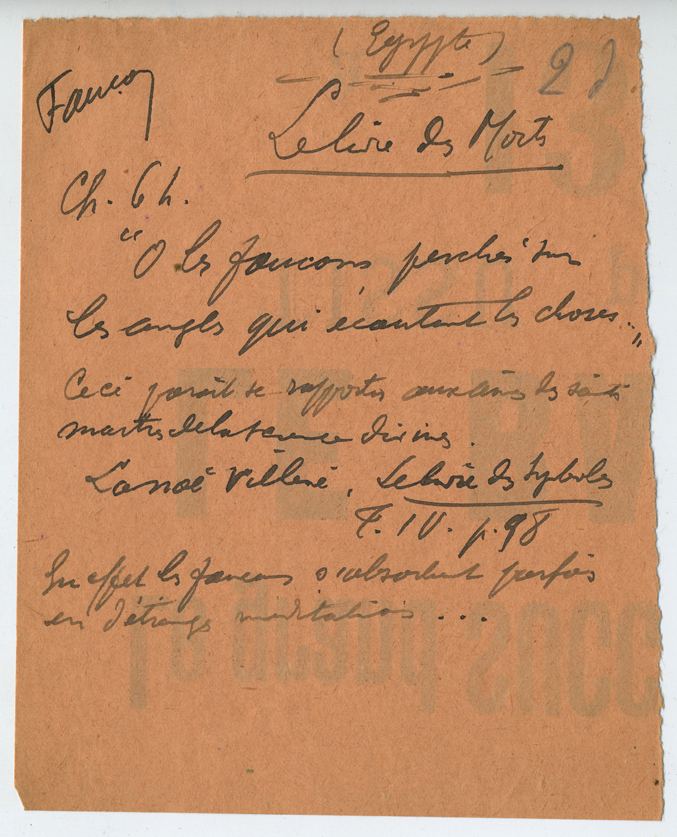 (Egypte)
Faucon
Le livre des Morts
Ch. 64.
"O les faucons perchés sur
les angles qui écoutent les choses..."
Ceci paraît se rapporter aux âmes des saints
maîtres de la science divine.
Lanoë Villène, Le livre des Symboles
T. IV. p. 98
En effet les faucons s'absorbent parfois
en d'étranges méditations...